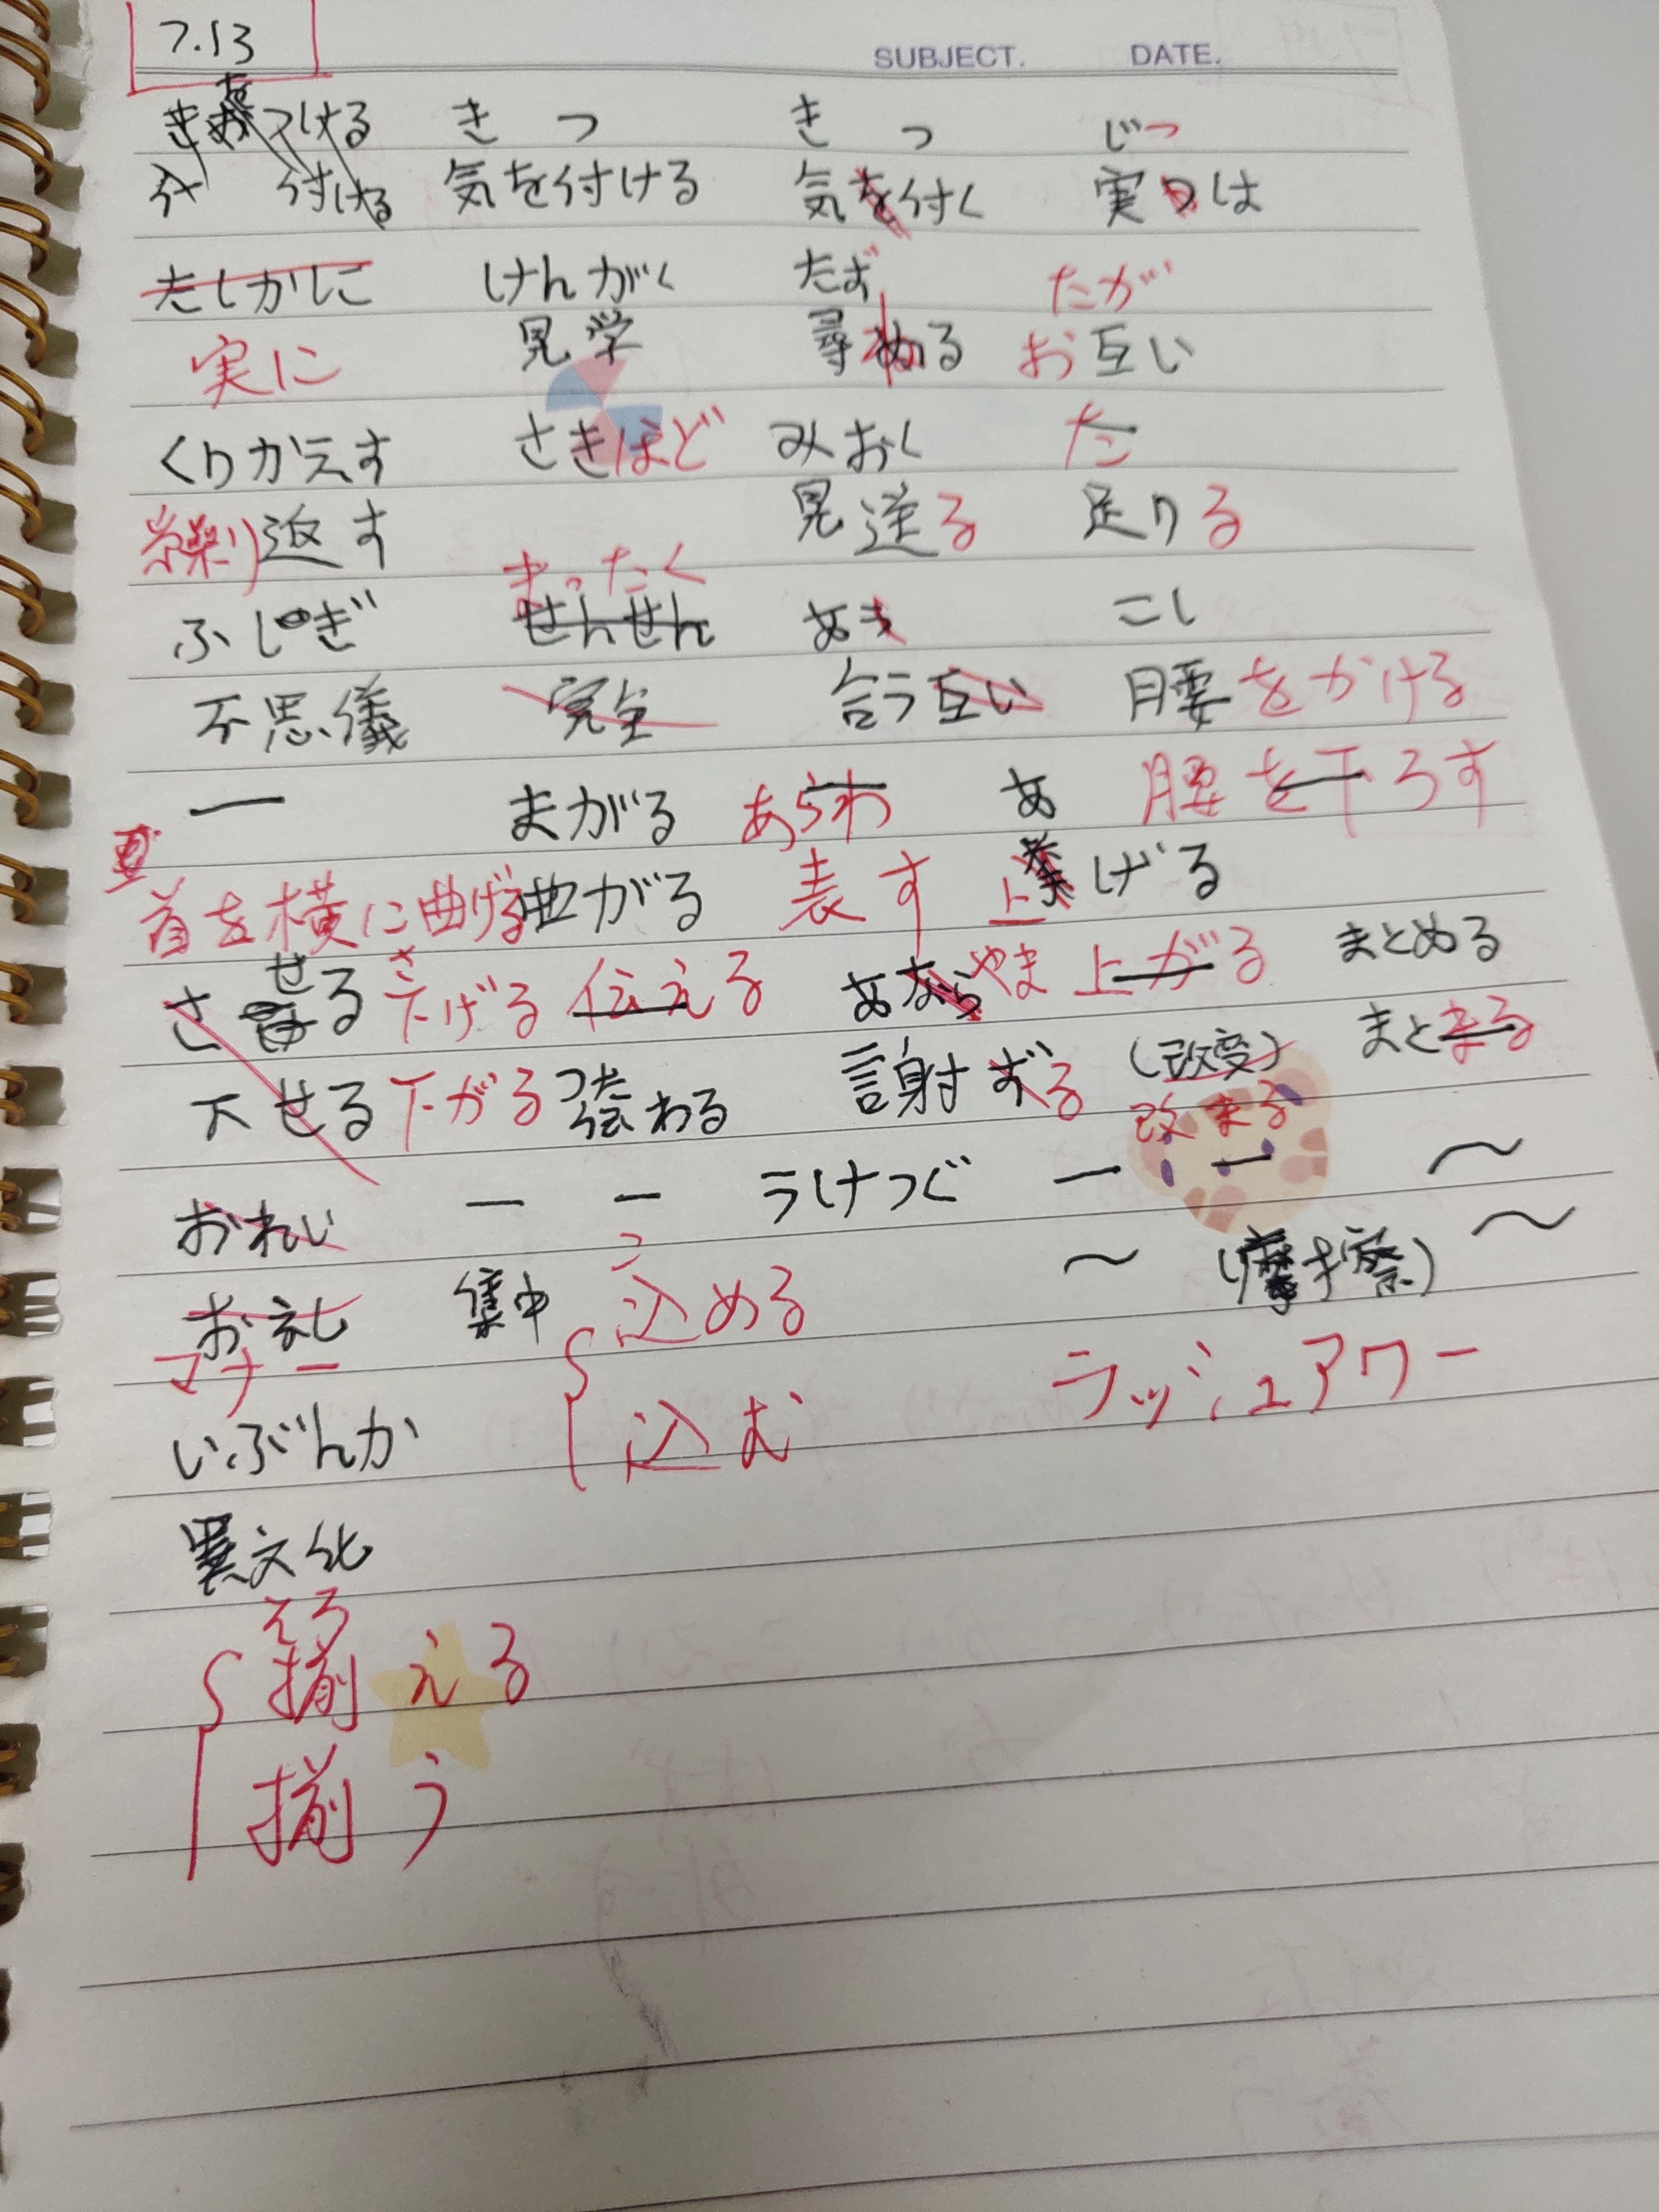 7.13
SUBJECT. DATE.
つける き つ き つ じっ
付ける 気を付ける 気付く 実は
たしかに けんがく たず たが
実に 見学 尋ねる お互い
くりかえす さきほど みおく た
繰り返す 見送る 足りる
まったく
ふしぎ ぜんぜん あ こし
不思議 完全 合う互い 腰をかける
ー まがる あらわ あ 腰を下ろす
首を横に曲げる 曲がる 表す 上げる
せ さ
さ る 下げる 伝える あ やま 上がる まとめる
下せる 下がる つた 伝わる 謝る (改変) まとまる
改まる
おれい ー ー うけつぐ ー ー 〜
こ
お礼 集中 込める 〜 (摩擦) 〜
マナー ラッシュアワー
いぶんか 込む
異文化
そろ
揃える
揃う